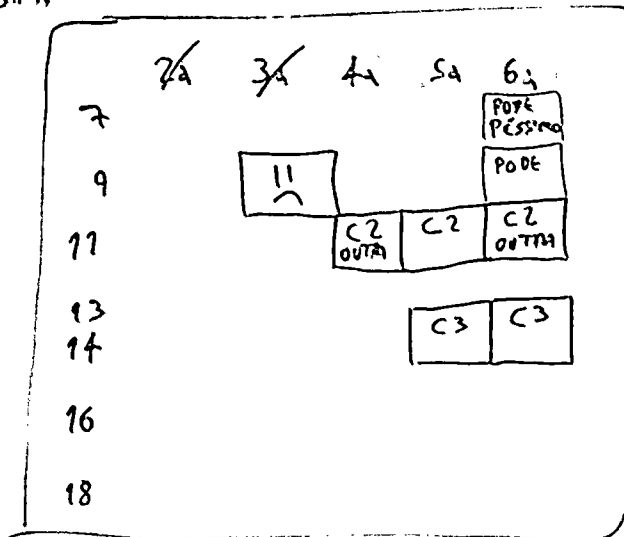 2a 3a 4a 5a 6a
7 PODE
PÉSSIMO
9 PODE
11 C2
OUTRA C2 C2
OUTRA
13
14 C3 C3
16
18